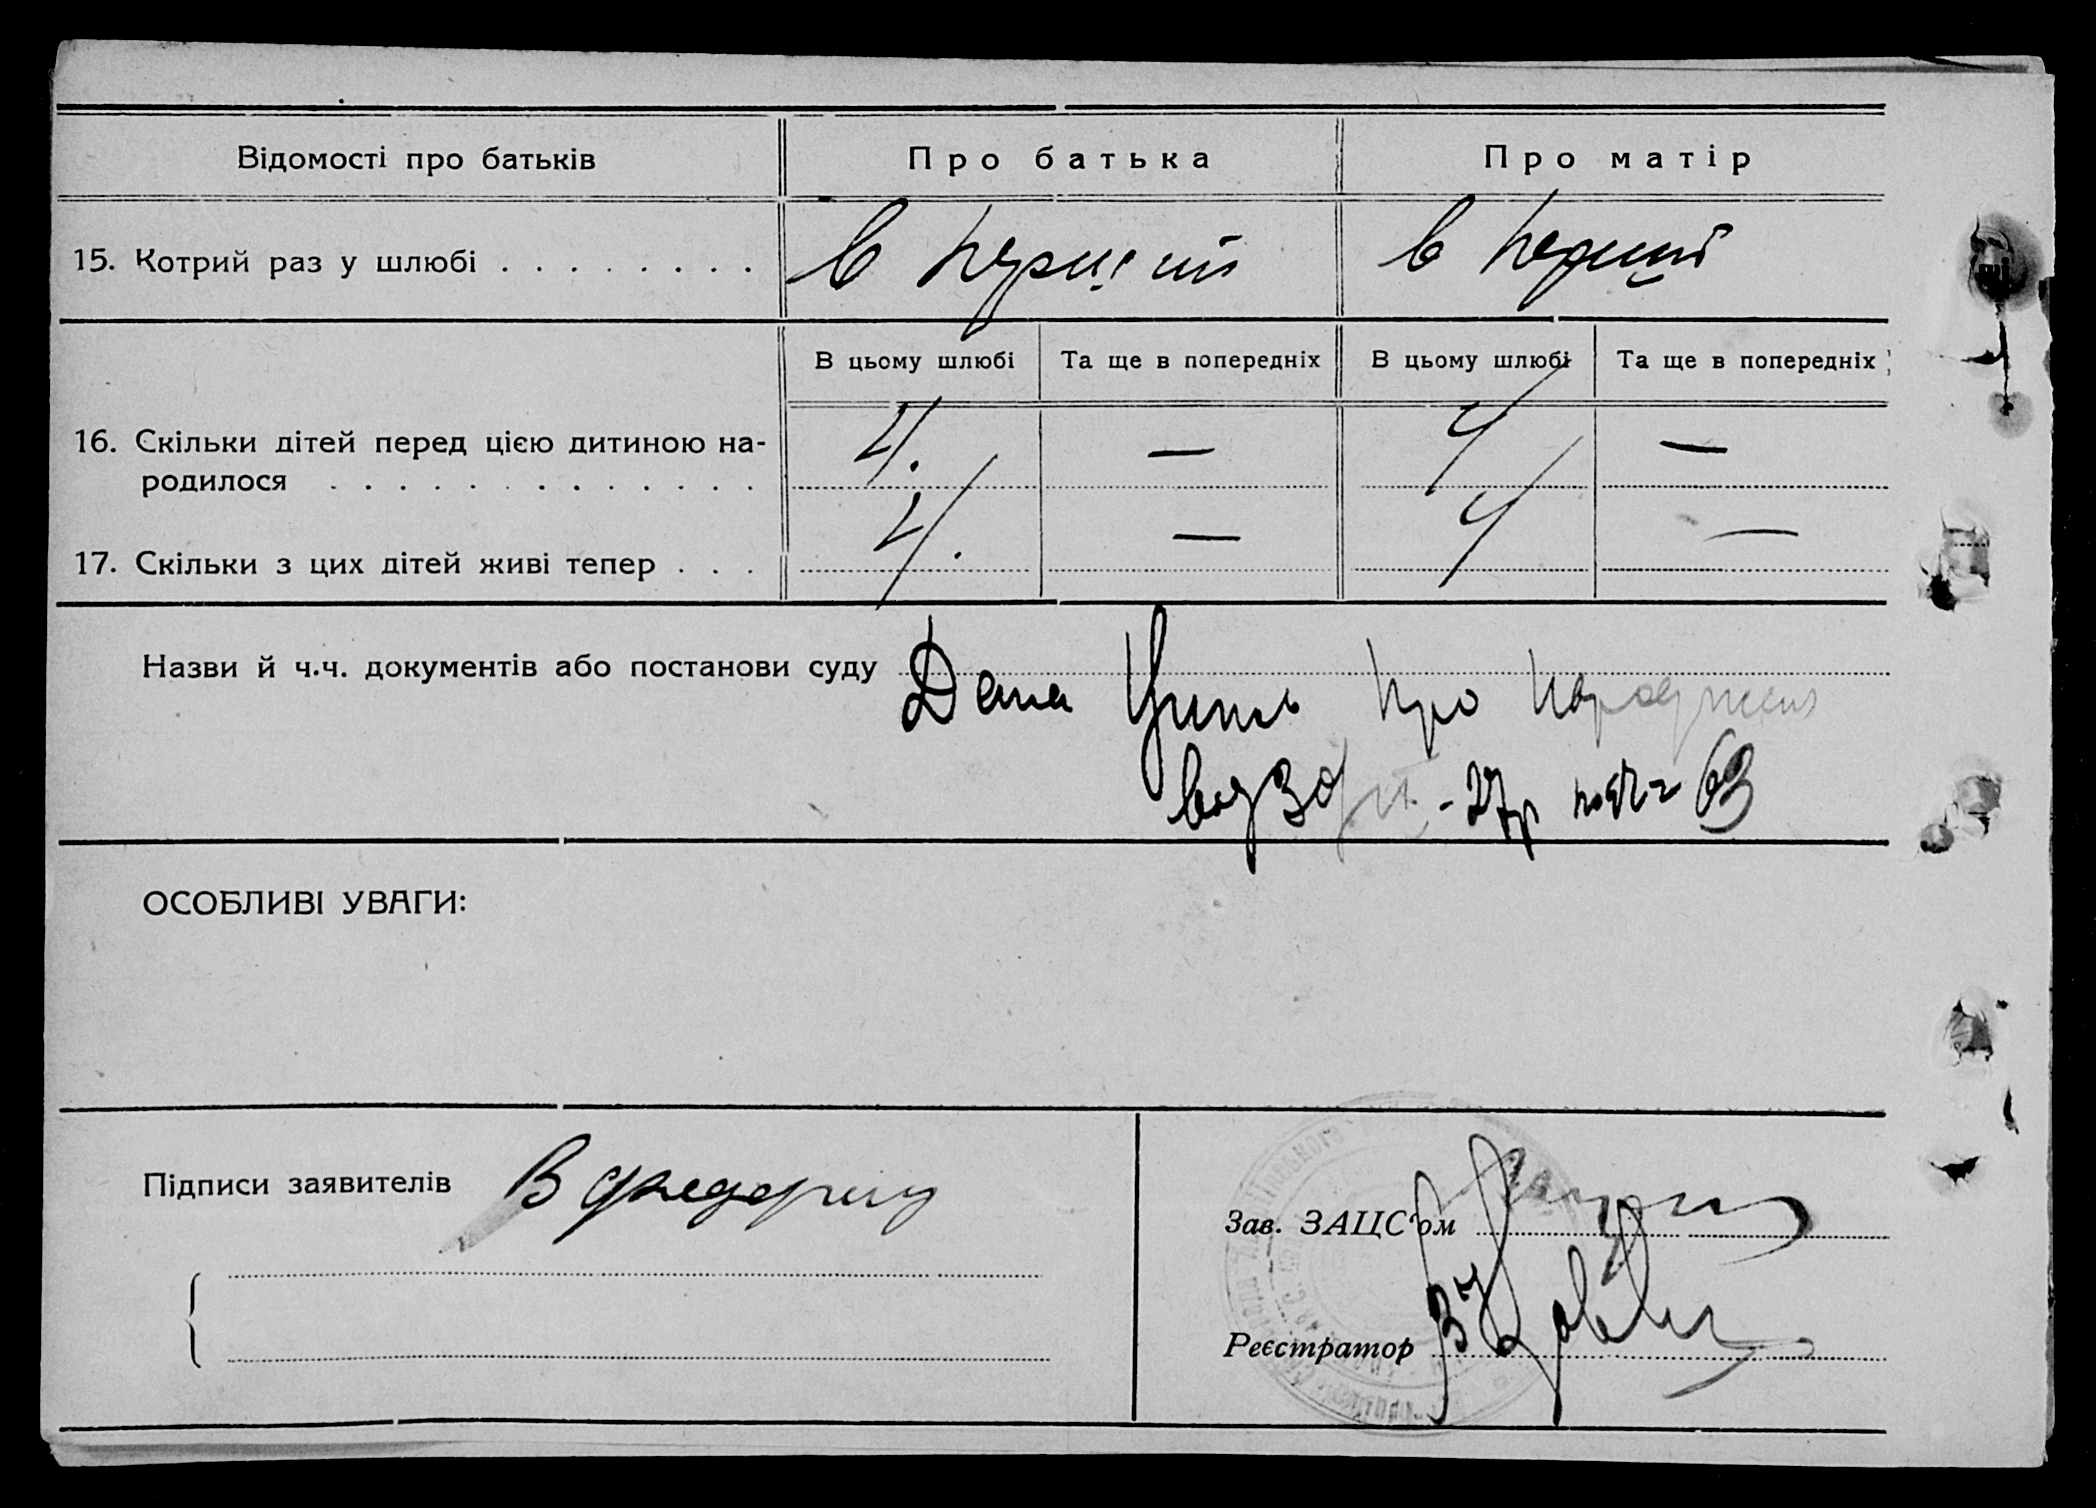 Відомості про батьків
Про батька
Про матір
15. Котрий раз у шлюбі . . . . . . . .
в перший
в перший
В цьому шлюбі
Та ще в попередніх
В цьому шлюбі
Та ще в попередніх
16. Скільки дітей перед цією дитиною на-
родилося . . . . . . . . . . . . .
4.
—
4
—
17. Скільки з цих дітей живі тепер . . .
4.
—
4
—
Назви й ч.ч. документів або постанови суду
Дана про
27р 63
ОСОБЛИВІ УВАГИ:
Підписи заявителів
В
Зав. ЗАЦС'ом
Реєстратор